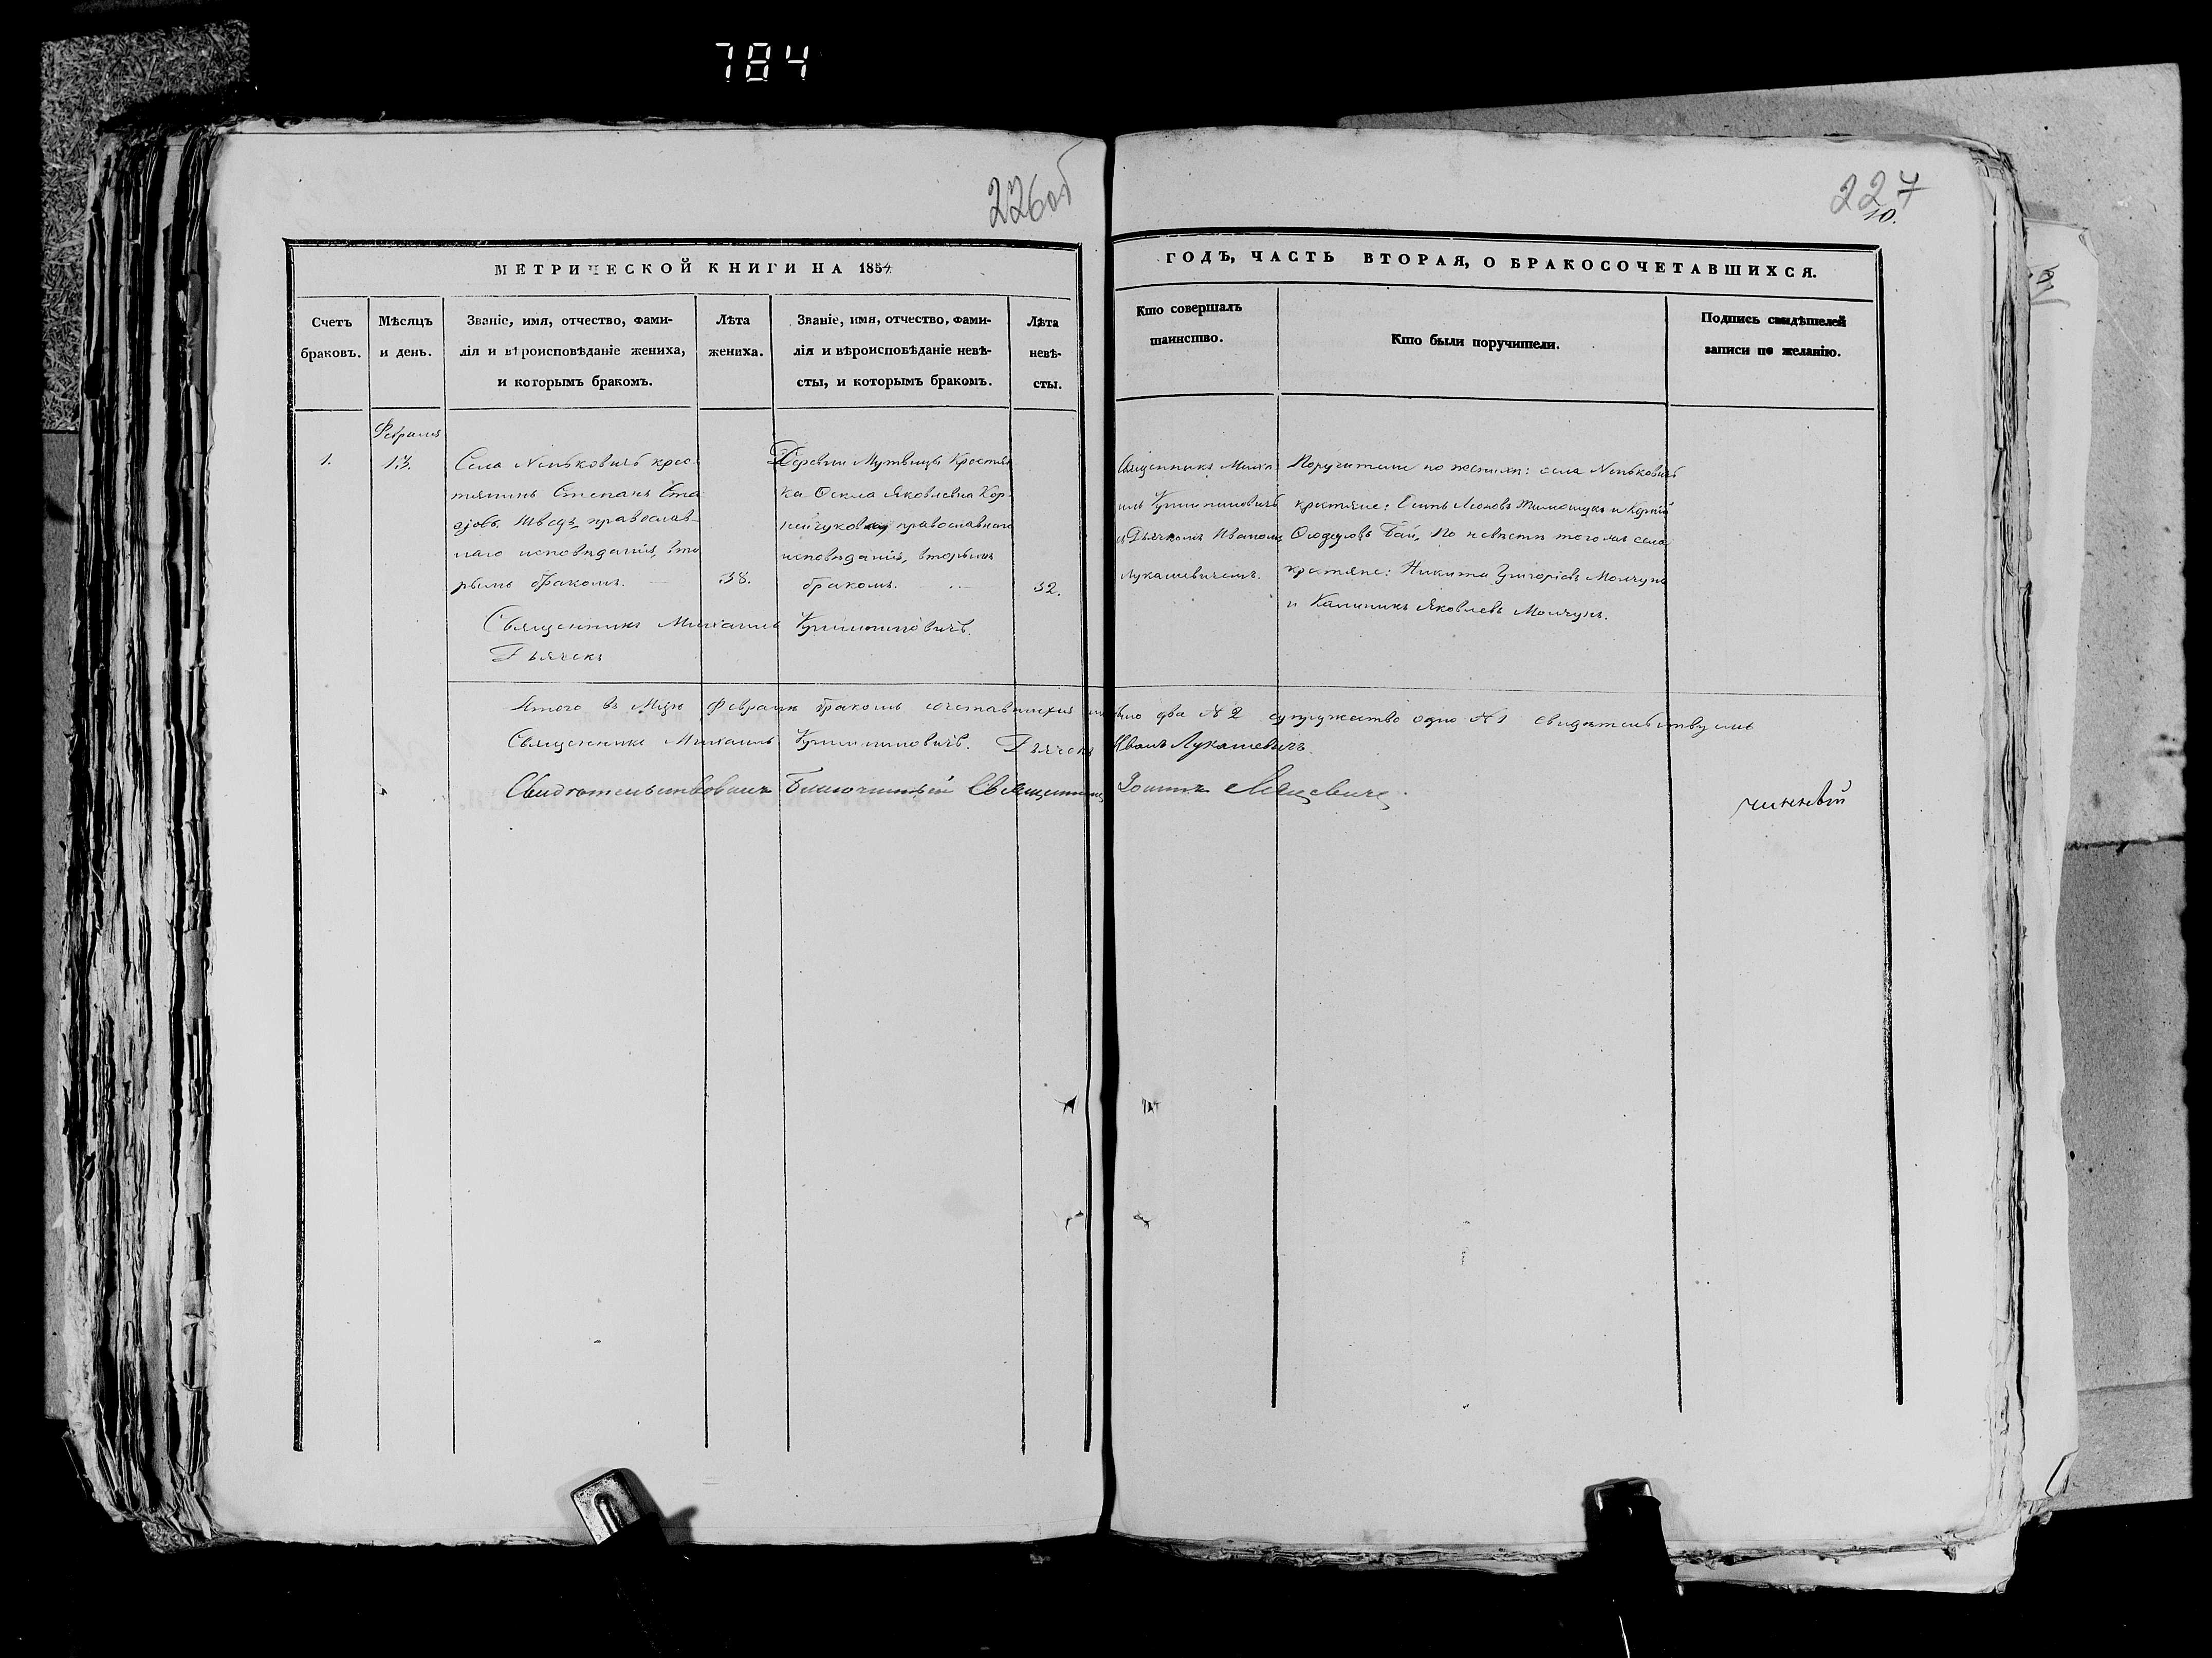 784
226об
227
10.
МЕТРИЧЕСКОЙ КНИГИ НА 1854
ГОДЪ, ЧАСТЬ ВТОРАЯ, О БРАКОСОЧЕТАВШИХСЯ.
Счетъ браковъ.
Мѣсяцъ и день.
Званіе, имя, отчество, фами-
лія и вѣроисповѣданіе жениха,
и которымъ бракомъ.
Лѣта
жениха.
Званіе, имя, отчество, фами-
лія и вѣроисповѣданіе невѣ-
сты, и которымъ бракомъ.
Лѣта
невѣ-
сты.
Кто совершалъ
таинство.
Кто были поручители.
Подпись свидѣтелей
записи по желанію.
Февраля
1.
13.
Села Неньковичъ крес-
тянинъ Степанъ
Шведъ, православ-
наго исповѣданія, вто
рымъ бракомъ.
38.
Деревни Мутвицы Крестян
ка Фекла Яковлевна Кор-
нейчукова православнаго
исповѣданія, вторымъ
бракомъ.
32.
Священникъ Миха
илъ
и Дьячкомъ Иваномъ
Лукашевичемъ.
Поручители по женихѣ: села Неньковичъ
крестяне: Есипъ Леоновъ Тимошукъ и Корній
Бай, По невѣстѣ тогожъ села
крестяне: Никита Григоріевъ Молчунъ
и Калиникъ Яковлевъ Молчунъ.
Священникъ Михаилъ
Дьячекъ
Итого въ Мцѣ Февралѣ бракомъ сочетавшихся было два № 2 супружество одно № 1 свидѣтельствуемъ
Священникъ Михаилъ Дьячекъ Иванъ Лукашевичъ.
Свидѣтельствовалъ Благочинный Священникъ
чинный